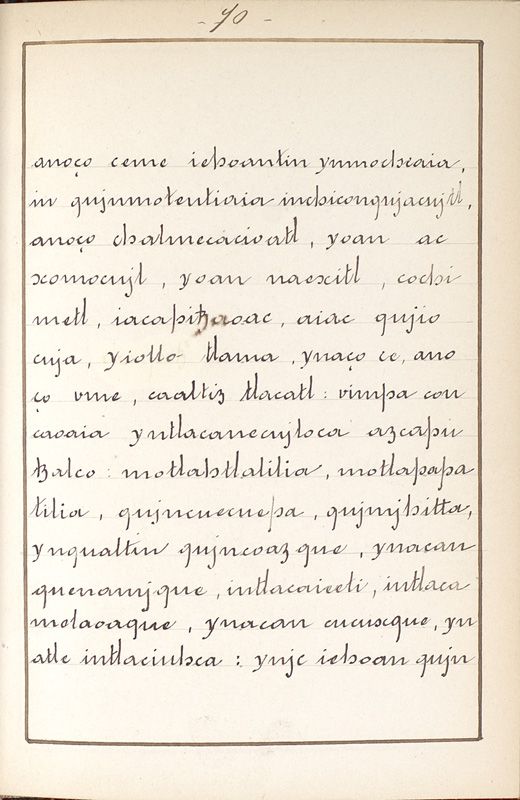 - 70 -
anoço ceme iehoantin ynmochcaia,
in qujnmotentiaia inchiconqujacujtl,
anoço chalmecacioatl, yoan ac
xomocujl, yoan naexitl, cochi
metl, iacapitzaoac, aiac qujio
cuja, yiollo tlama, ynaço ce, ano
ço vme, caaltiz tlacatl: vimpa con
caoaia yntlacanecujloca azcapu
tzalco: motlahtlalilia, motlapapa
tilia, qujncuecuepa, qujmjhitta,
ynqualtin qujncoazque, ynacan
quenamjque, intlacaieeli, intlaca
melaoaque, ynacan cucuxque, yn
atle intlaciuhca: ynjc iehoan qujn